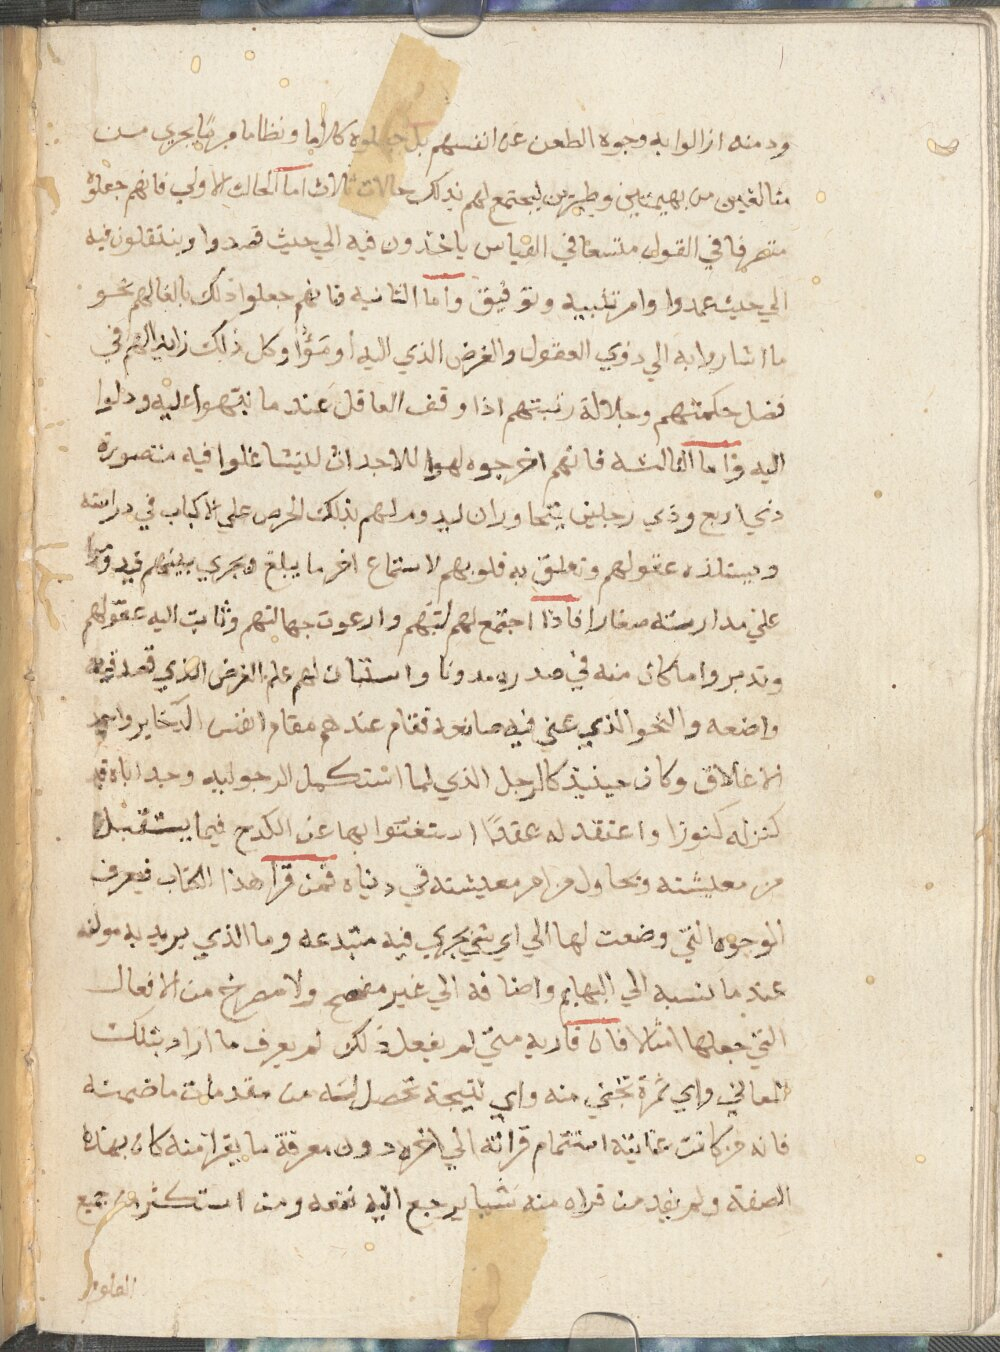 ودمنه ازالوا به وجوه الطعن عن انفسهم بل جعلوه كلاما ونظاما مرتبا يجري من
مثالفين من بهيمتين وطيرين ليجتمع لهم بذلك حالات ثلاث اما الحالت الاولي فانهم جعلوه
متصرفا في القول متسعا في القياس ياخذون فيه الي حيث قصدوا وينتقلون فيه
الي حيث عمدوا وامر تلبيه وتوفيق واما الثانيه فانهم جعلوا ذلك بالغا لهم نحو
ما اشاروا به الي ذوي العقول والغرض الذي اليه أومَؤُا وكل ذلك زايد لهم في
فضل حكمتهم وجلالة رتبتهم اذا وقف العاقل عند ما نبّهوا عليه ودلوا
اليه واما الثالثه فانهم اخرجوه لهوا للاحداث ليتشاغلوا فيه منتصورة
ذي اربع وذي رجلين يتحاوران ليدومـلهم بذلك الحرص علي الاكباب في دراسته
ويستلذه عقولهم وتعلق به قلوبهم لاستماع اخر ما يبلغ ويجري بينهم فيدوموا
علي مدارسته صغارا فاذا اجتمع لهم لبّهم وارعوت جهالتهم وثابت اليه عقولهم
وتدبروا ما كان منه في صدرهم مدونا واستبان لهم علم الغرض الذي قصد فيه
واضعه والنحو الذي عني فيه صانعه فقام عندهم مقام انفس الذخاير واسر
الاغلاق وكان حينيذ كالرجل الذي لما استكمل الرجوليه وجد اباه قد
كنز له كنوزا واعتقد له عقدًا استغنوا بها عن الكدح فيما يستقبل
من معيشته ويحاول من امر معيشته في دنياه فمن قرا هذا الكتاب فيعرف
الوجوه التي وضعت لها الي اي شي يجري فيه مبتدعه وما الذي يريد به مولفه
عند ما نسبه الي البهايم واضافه الي غير مفصح ولا مصرخ من الافعال
التي جعلها امثالا فان قاريه متي لم يفعل ذلك لم يعرف ما اراد بتلك
المعاني واي ثمرة تجني منه واي نتيجة تحصل له من مقدمات ما ضمنه
فانه من كانت غايته استتمام قراته الي اخره دون معرفة ما يقرا منه كان بهذه
الصفة ولم يفد من قراه منه شيا يرجع اليه نفعه ومن استكثر من جميع
العلوم